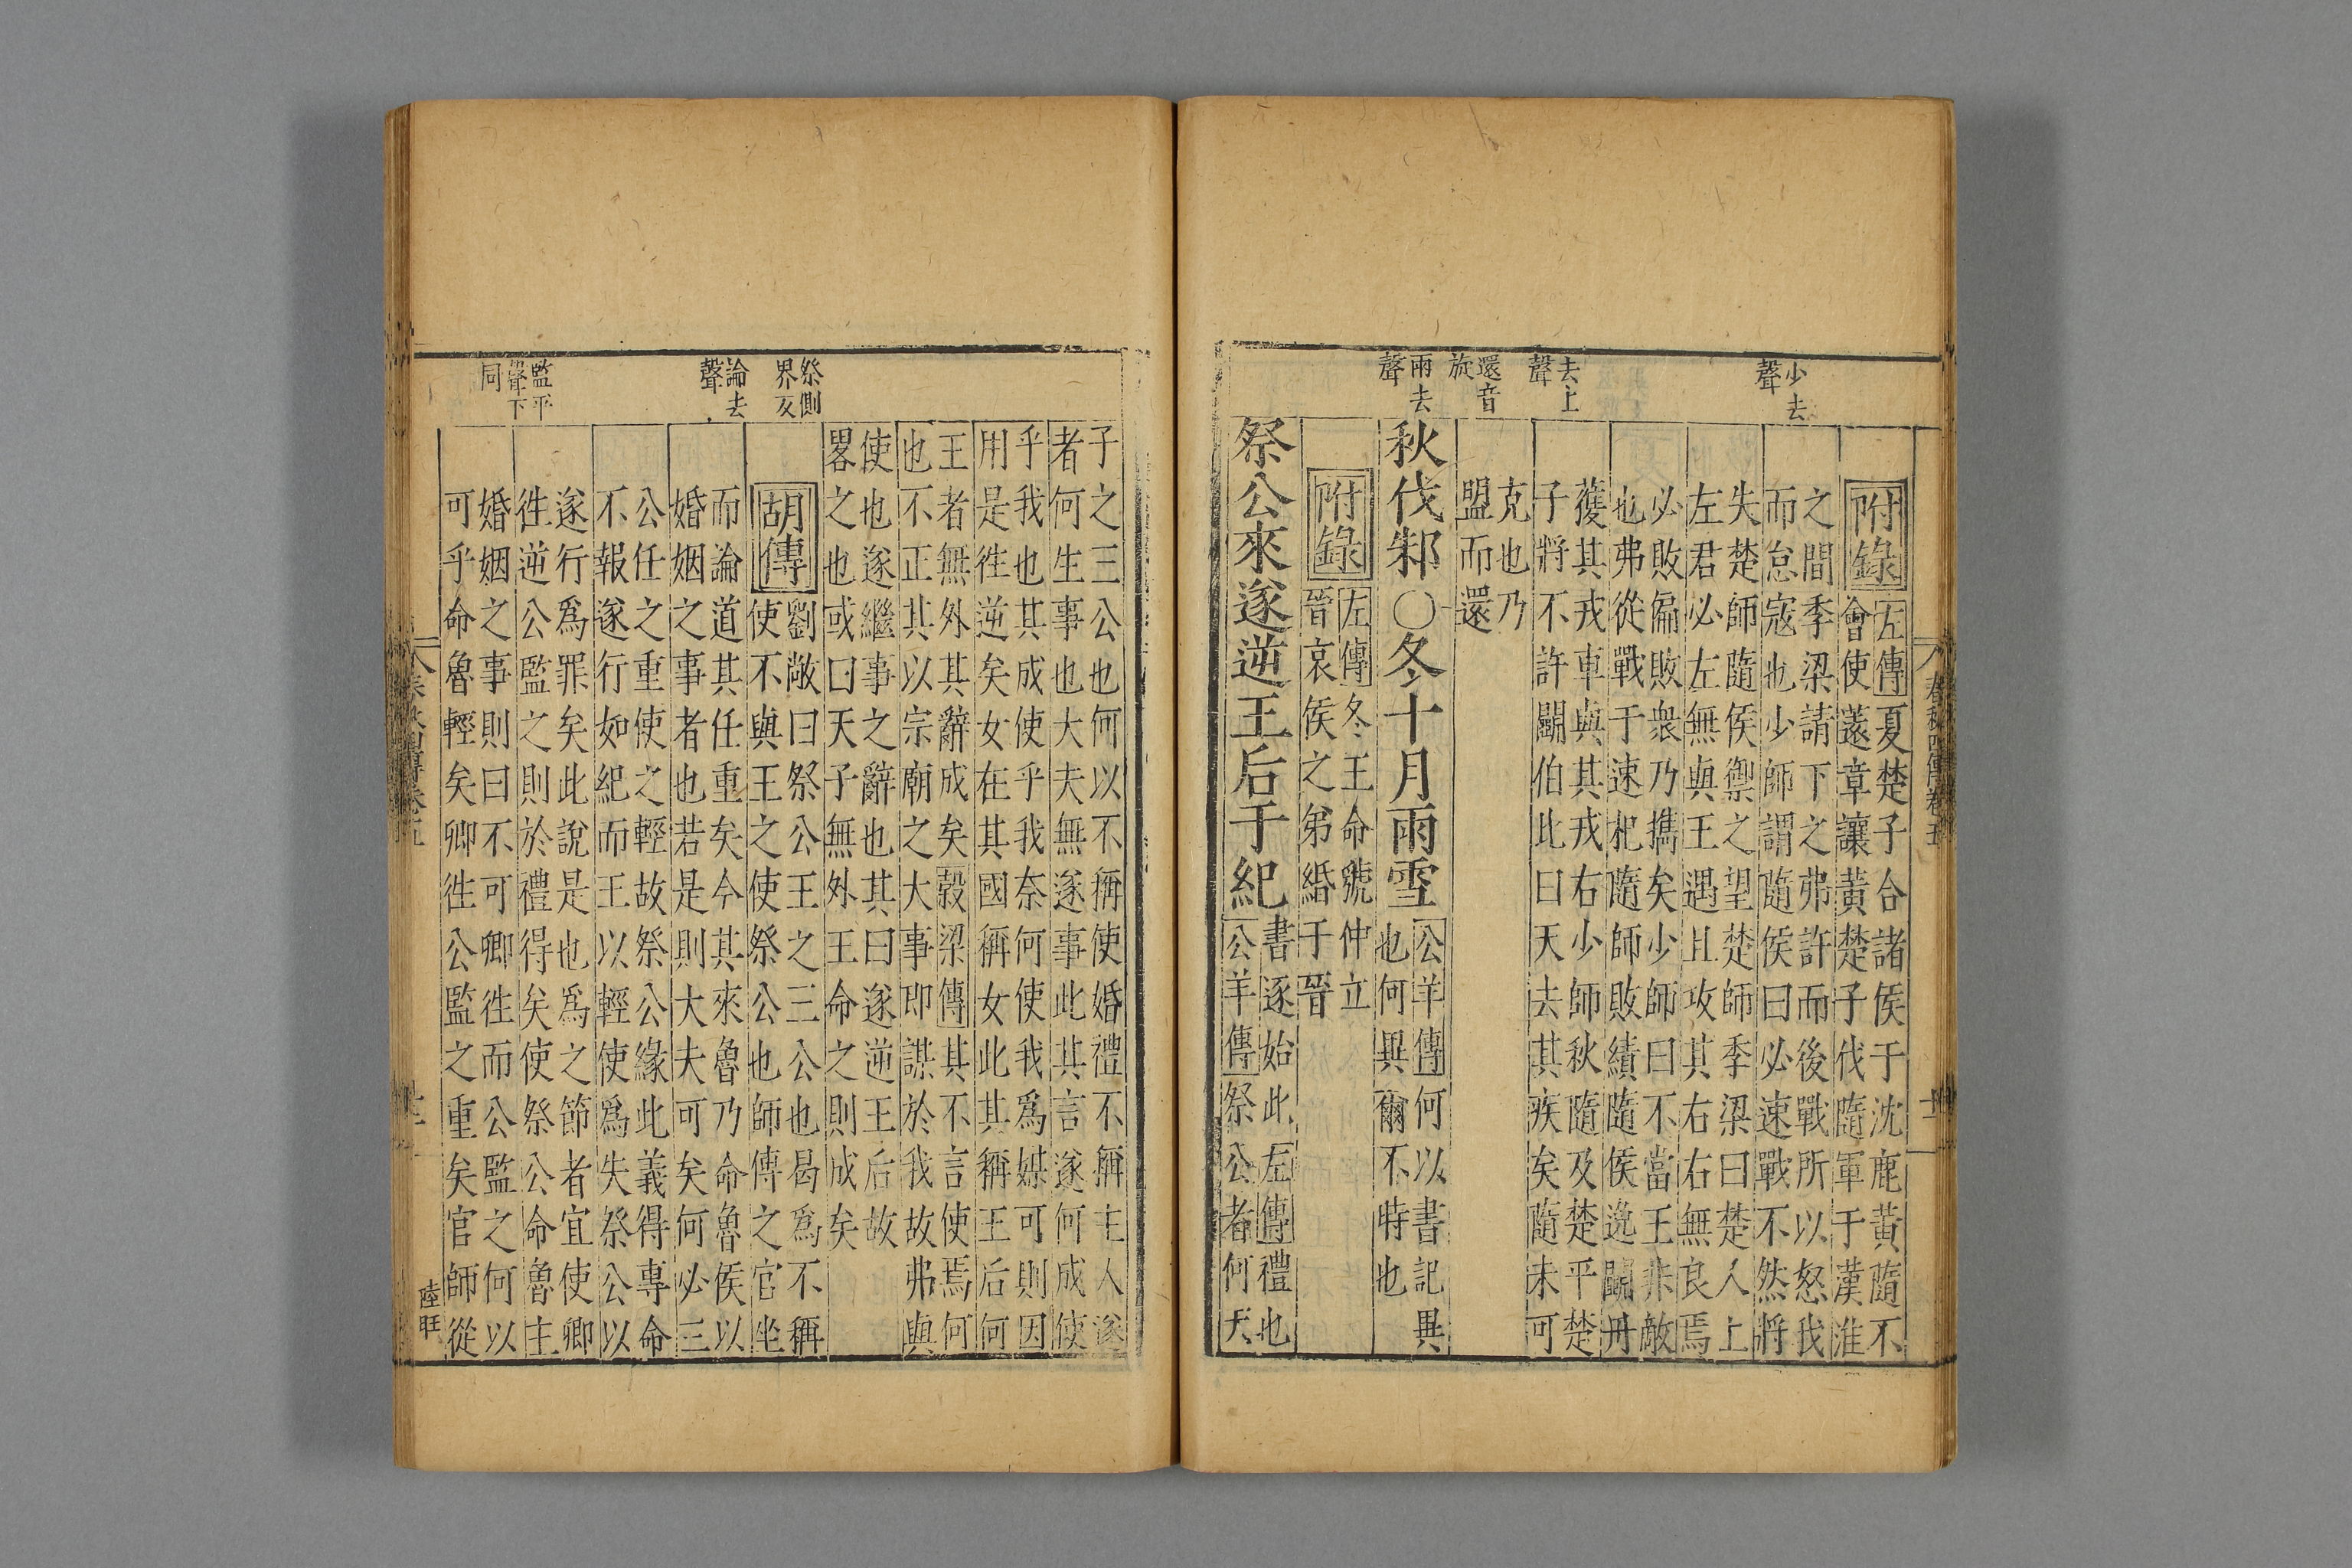 少去
聲
去上
聲
還音
旋
雨去
聲
附錄
左傳夏楚子合諸侯于沈鹿黃隨不
會使薳章讓黃楚子伐隨軍于漢淮
之間季梁請下之弗許而後戰所以怒我
而怠寇也少師謂隨侯曰必速戰不然將
失楚師隨侯禦之望楚師季梁曰楚人上
左君必左無與王遇且攻其右右無良焉
必敗偏敗衆乃攜矣少師曰不當王非敵
也弗從戰于速杞隨師敗績隨侯逸鬬丹
獲其戎車與其戎右少師秋隨及楚平楚
子將不許鬬伯比曰天去其疾矣隨未可
克也乃
盟而還
秋伐邾○冬十月雨雪
公羊傳何以書記異
也何異爾不時也
附錄
左傳冬王命虢仲立
晉哀侯之弟緡于晉
祭公來遂逆王后于紀
書逐始此左傳禮也
公羊傳祭公者何天
春秋四傳卷五
祭側
界反
論去
聲
監平
聲下
同
子之三公也何以不稱使婚禮不稱主人遂
者何生事也大夫無遂事此其言遂何成使
乎我也其成使乎我奈何使我爲媒可則因
用是徃逆矣女在其國稱女此其稱王后何
王者無外其辭成矣穀梁傳其不言使焉何
也不正其以宗廟之大事即謀於我故弗與
使也遂繼事之辭也其曰遂逆王后故
畧之也或曰天子無外王命之則成矣
胡傳
劉敞曰祭公王之三公也曷爲不稱
使不與王之使祭公也師傳之官坐
而論道其任重矣今其來魯乃命魯侯以
婚姻之事者也若是則大夫可矣何必三
公任之重使之輕故祭公緣此義得專命
不報遂行如紀而王以輕使爲失祭公以
遂行爲罪矣此說是也爲之節者宜使卿
徃逆公監之則於禮得矣使祭公命魯主
婚姻之事則曰不可卿徃而公監之何以
可乎命魯輕矣卿徃公監之重矣官師從
陸旺